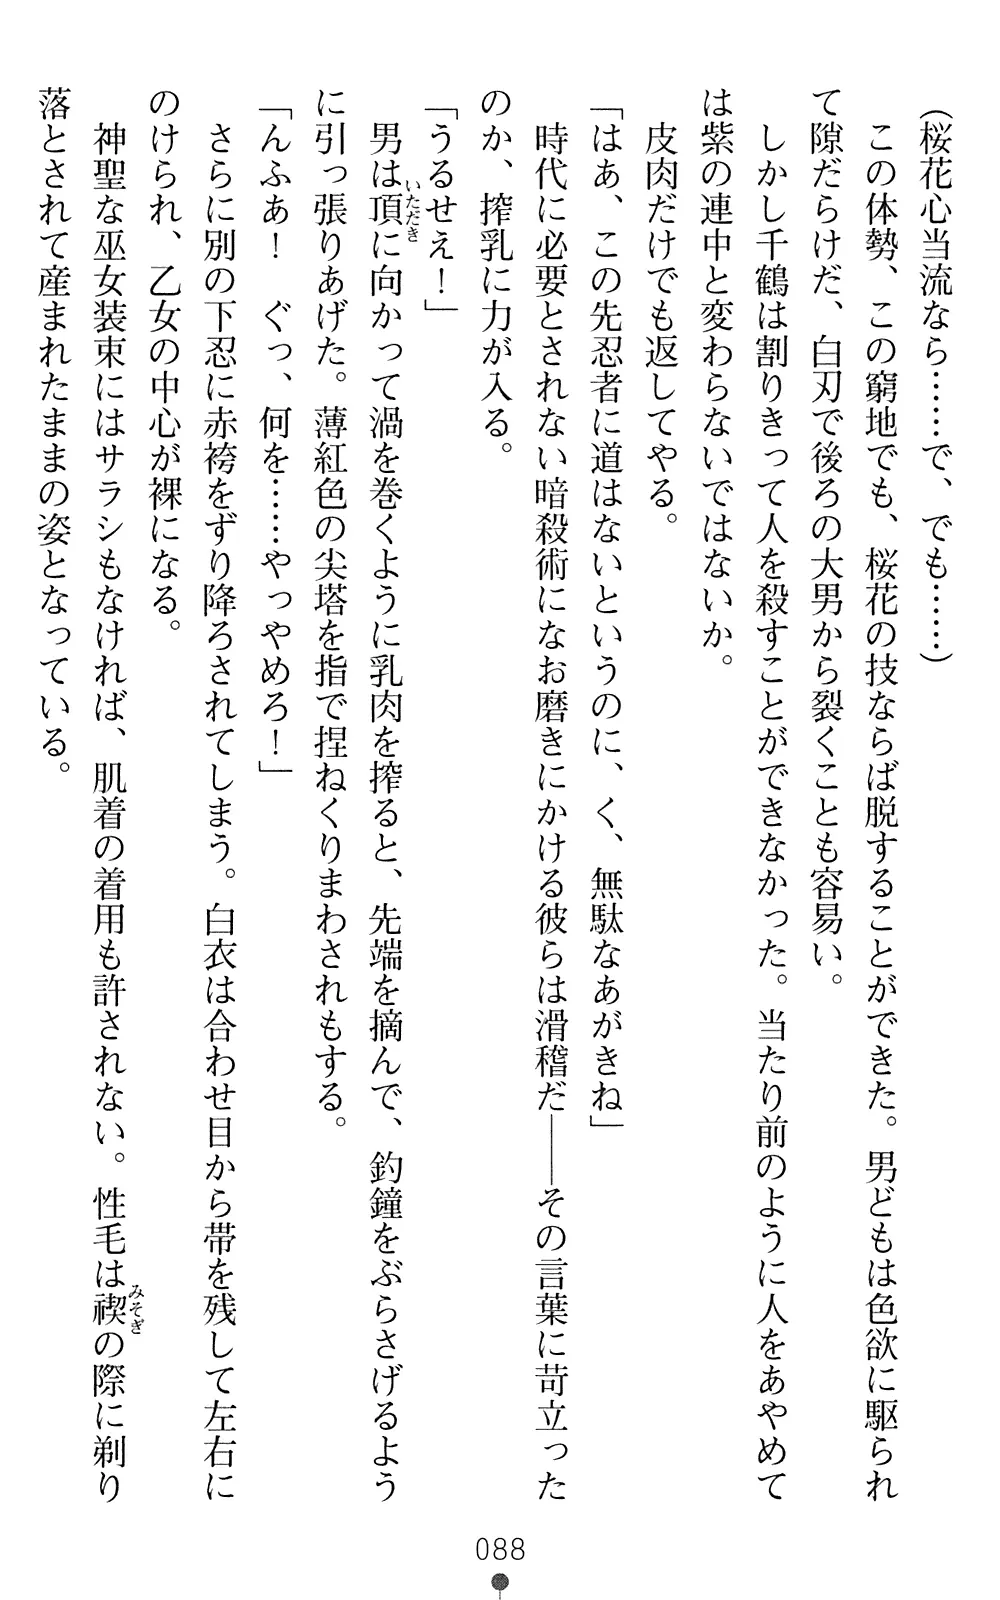 （桜花心当流なら……で、でも……）
　この体勢、この窮地でも、桜花の技ならば脱することができた。男どもは色欲に駆られ
て隙だらけだ、白刃で後ろの大男から裂くことも容易い。
　しかし千鶴は割りきって人を殺すことができなかった。当たり前のように人をあやめて
は紫の連中と変わらないではないか。
　皮肉だけでも返してやる。
「はあ、この先忍者に道はないというのに、く、無駄なあがきね」
　時代に必要とされない暗殺術になお磨きにかける彼らは滑稽だ――その言葉に苛立った
のか、搾乳に力が入る。
「うるせえ！」
　男は頂いただきに向かって渦を巻くように乳肉を搾ると、先端を摘んで、釣鐘をぶらさげるよう
に引っ張りあげた。薄紅色の尖塔を指で捏ねくりまわされもする。
「んふぁ！　ぐっ、何を……やっやめろ！」
　さらに別の下忍に赤袴をずり降ろされてしまう。白衣は合わせ目から帯を残して左右に
のけられ、乙女の中心が裸になる。
　神聖な巫女装束にはサラシもなければ、肌着の着用も許されない。性毛は禊みそぎの際に剃り
落とされて産まれたままの姿となっている。
088